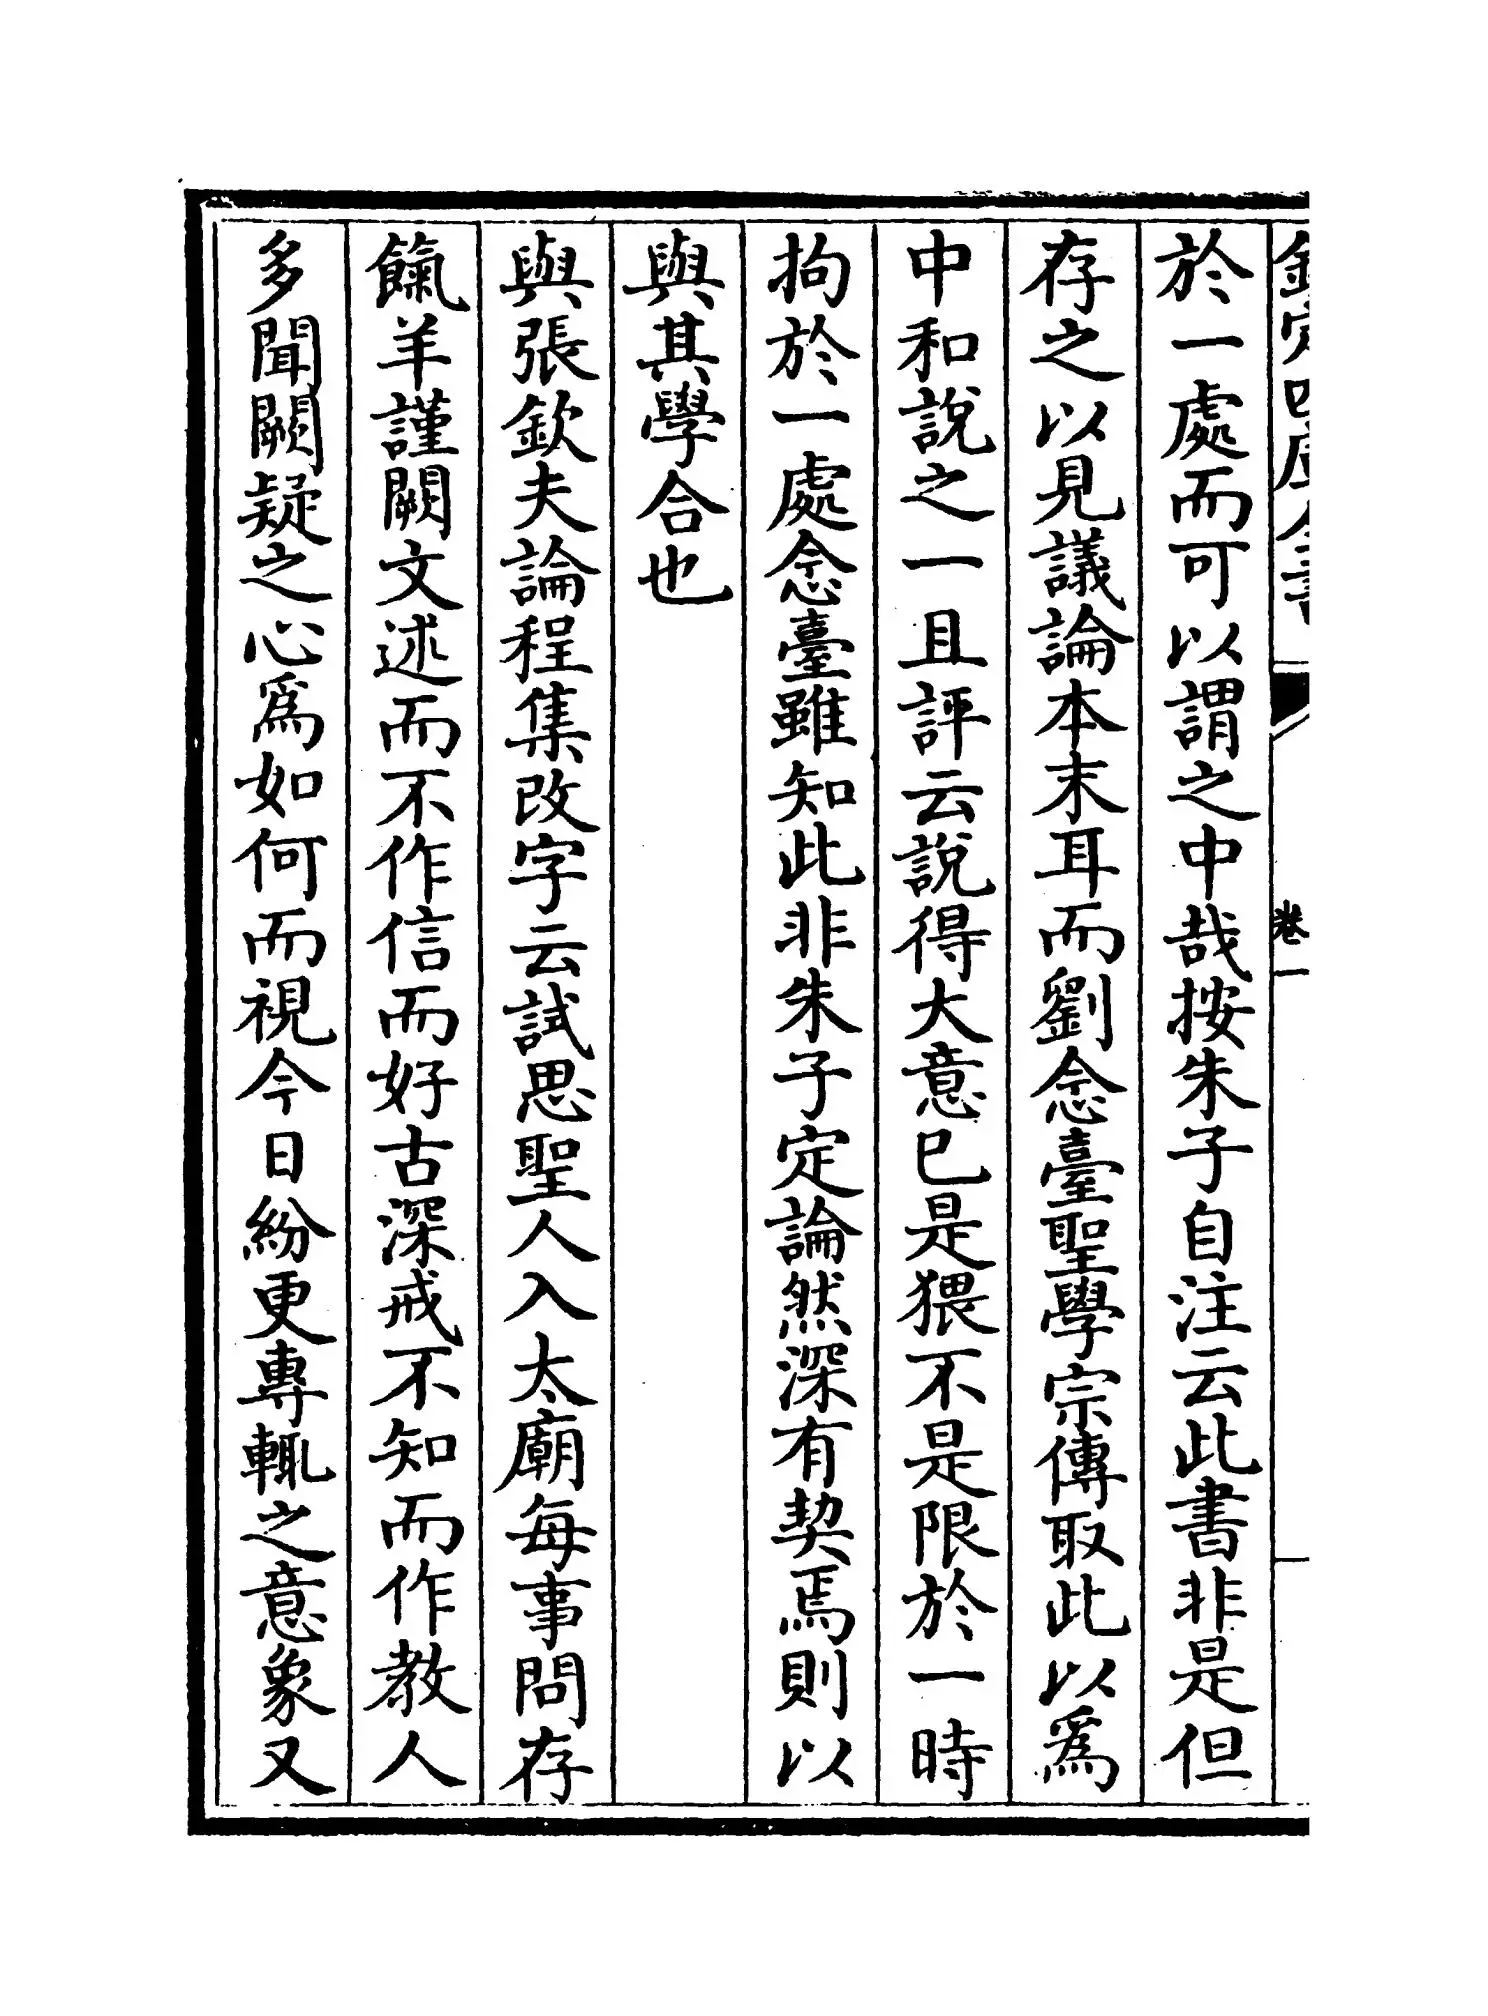 欽定四庫全書 卷一
於一處而可以謂之中哉按朱子自注云此書非是但
存之以見議論本末耳而劉念臺聖學宗傳取此以爲
中和說之一且評云說得大意已是猥不是限於一時
拘於一處念臺雖知此非朱子定論然深有契焉則以
與其學合也
與張欽夫論程集改字云試思聖人入太廟每事問存
餼羊謹闕文述而不作信而好古深戒不知而作教人
多聞闕疑之心爲如何而視今日紛更專輒之意象又